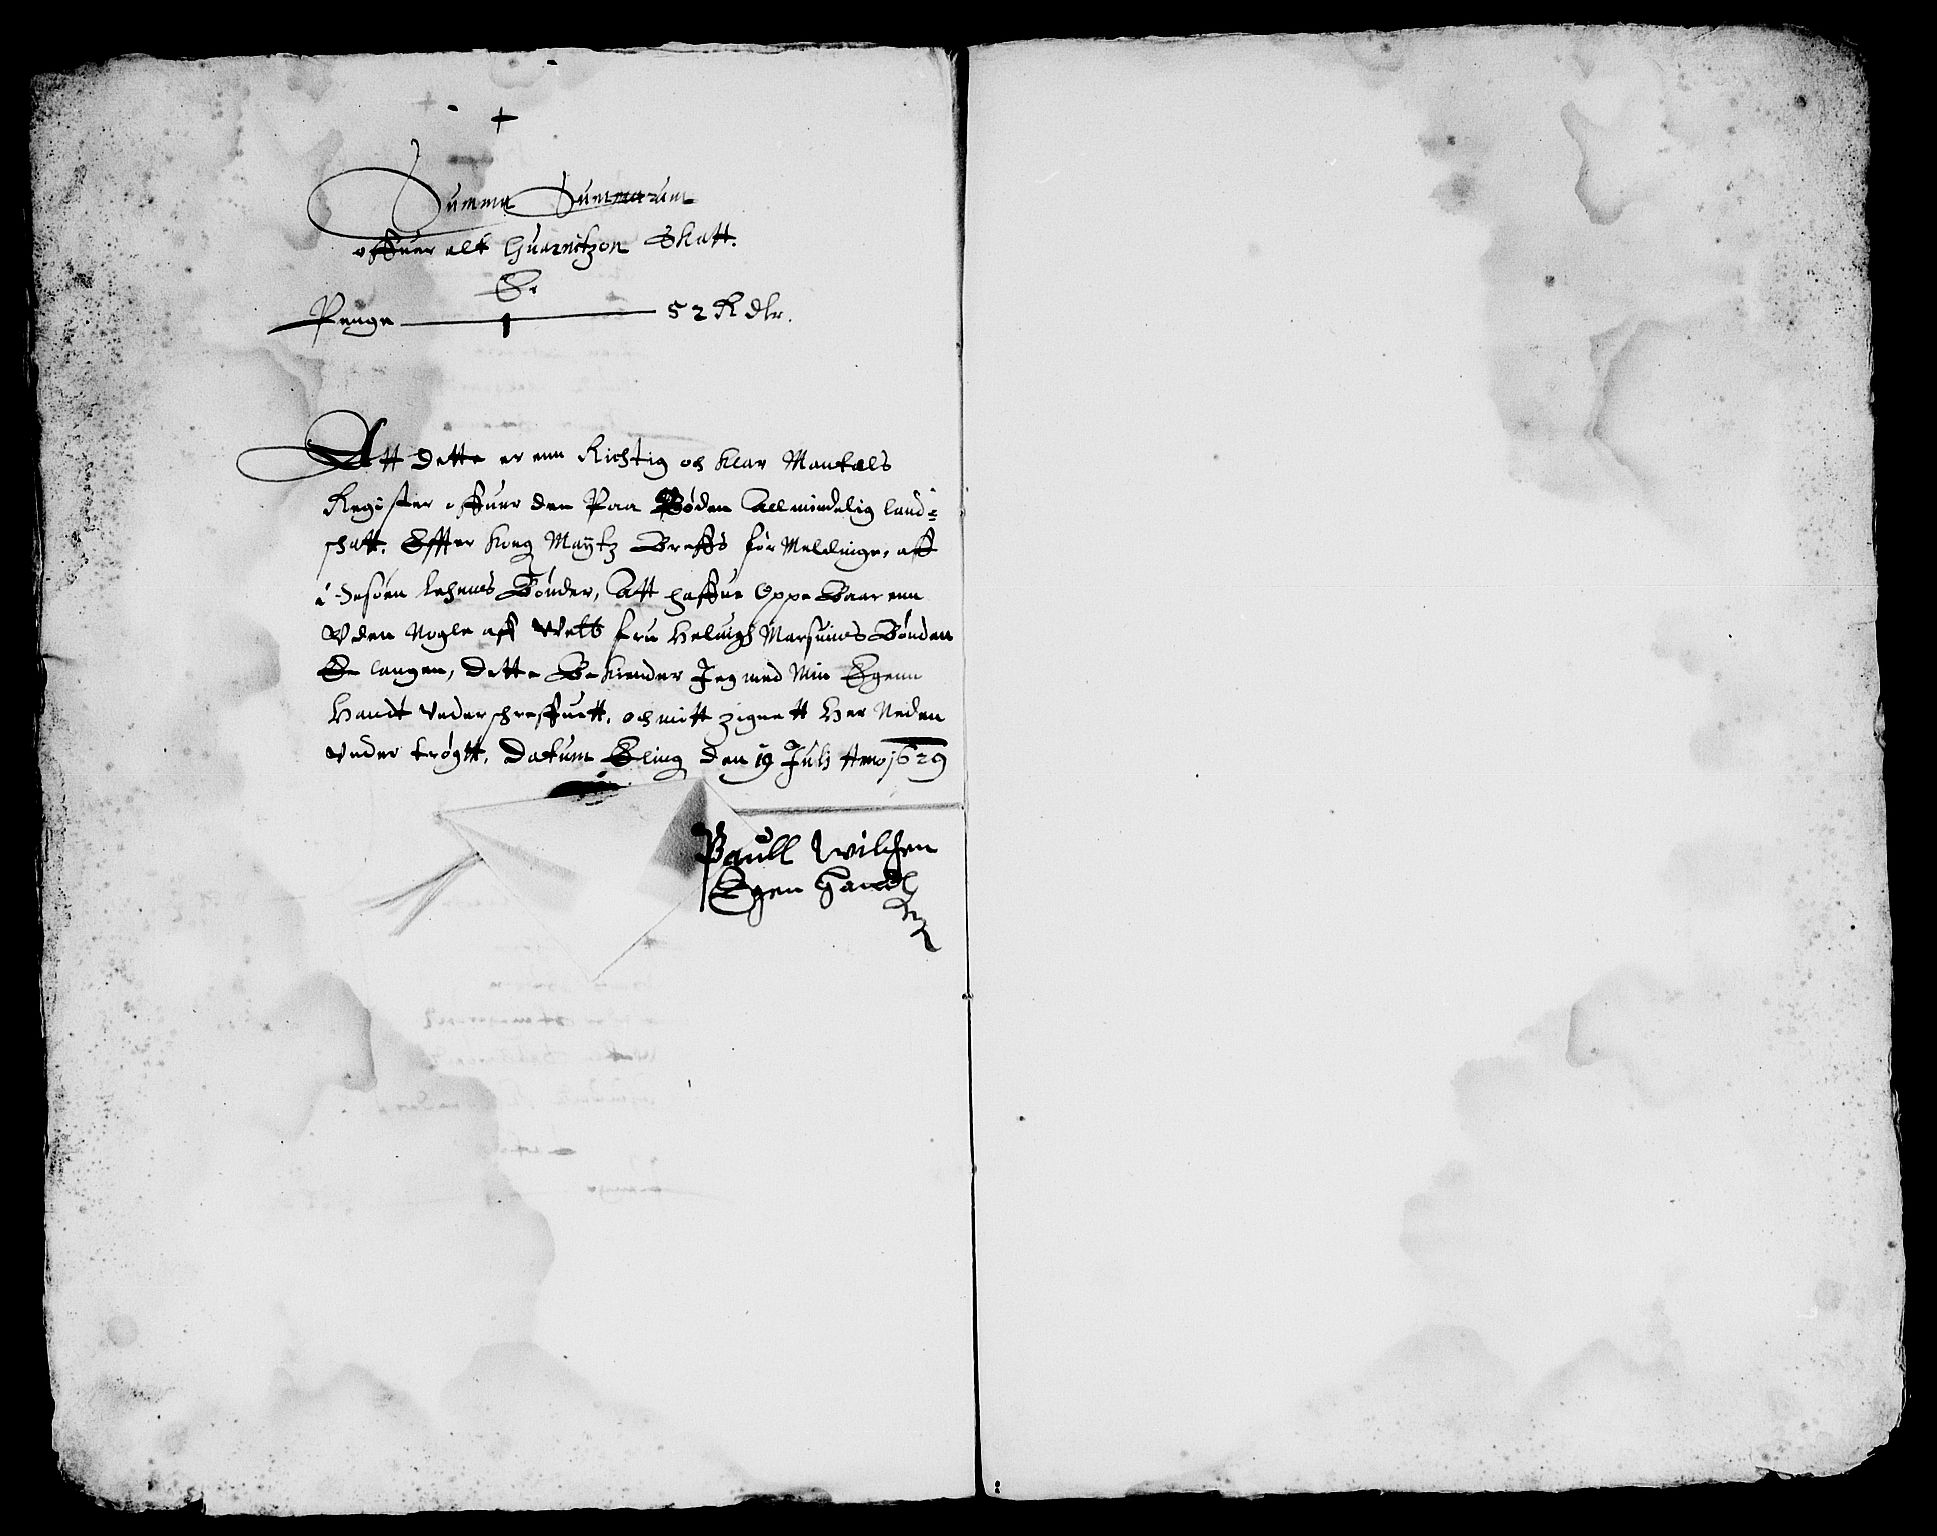 Summa Summarum
offuer alt Guarnitzon Skatt.
Er
Penge 52 Rdlr.
Att dette er enn Richtig och klar Mantals
Register offuer den Paa Bøden Allmindelig land-
schatt. Effter Kong Maytz Breffs for Meldinge, aff
Lehens Bønder, Att haffue Oppe Baarenn
Vden Nogle aff Welb fru Heluigh Marsuines Bønder
Er langen, dette Be Kiender Jeg med Min Egenn
Handt vnderschreffuett, och mitt zignett Her Neden
vnder trøgtt. Datum Eling den 19 Julij Anno 1629
Paull Nilsen
Egen Handt